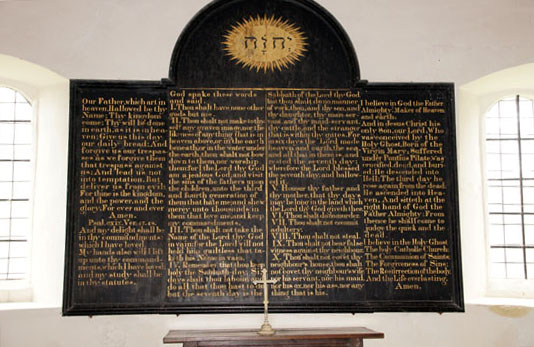 יהוה
Our Father, which art in
heaven, Hallowed be thy
Name; Thy kingdom
come; Thy will be done
in earth, as it is in hea-
ven; Give us this day
our daily bread; And
forgive us our trespas-
ses as we forgive them
that trespass against
us; And lead us not
into temptation, But
deliver us from evil
For thine is the kingdom,
and the power, and the
glory, For ever and ever
Amen.
And my delight shall be
in thy commandments
which I have loved
My hands also will I lift
up unto thy command-
ments, which I have loved
and my study shall be
in thy statutes.
God spake these words
and said,
I. Thou shalt have none other
gods but me.
II. Thou shalt not make to thy
self any graven image, nor the
likeness of any thing that is in
heaven above, or in the earth
beneath, or in the water under
the earth, thou shalt not bow
down to them, nor worship
them for I the Lord thy God
am a jealous God, and visit
the sins of the fathers upon
the children, unto the third
and fourth generation of
them that hate me, and shew
mercy unto thousands in
them that love me, and keep
my commandments.
III. Thou shalt not take the
Name of the Lord thy God
in vain for the Lord will not
hold him guiltless that
taketh his Name in vain.
IV. Remember that thou keep
holy the Sabbath-day. Six
days shalt thou labour and
do all that thou hast to do
but the seventh day is the
Sabbath of the Lord thy God
thou shalt do no manner
of work, thou, and thy son, and
thy daughter, thy man-ser-
vant, and thy maid-servant,
thy cattle, and the stranger
that is within thy gates. For
in six days the Lord made
heaven and earth, the sea,
and all that in them is
and rested the seventh day,
wherefore the Lord blessed
the seventh day, and hallow-
ed it.
V. Honour thy father and
thy mother, that thy days
may be long in the land which
the Lord thy God giveth thee.
VI. Thou shalt do no murder.
VII. Thou shalt not commit
adultery.
VIII. Thou shalt not steal.
IX. Thou shalt not bear false
witness against thy neighbour.
X. Thou shalt not covet thy
neighbour's house, thou shalt
not covet thy neighbour's wife
nor his servant, nor his maid,
nor his ox, nor his ass, nor any
thing that is his.
I believe in God the Father
Almighty, Maker of Heaven
and earth.
And in Jesus Christ his
only Son, our Lord, Who
was conceived by the
Holy Ghost, Born of the
Virgin Mary, Suffered
under Pontius Pilate, was
crucified dead, and buri-
ed He descended into
Hell, The third day he
rose again from the dead,
He ascended into Hea-
ven, And sitteth at the
right hand of God the
Father Almighty; From
whence he shall come to
judge the quick and the
dead
I believe in the Holy Ghost
The holy Catholic Church
The Communion of Saints
The Forgiveness of Sins;
The Resurrection of the body,
And the Life everlasting.
Amen.